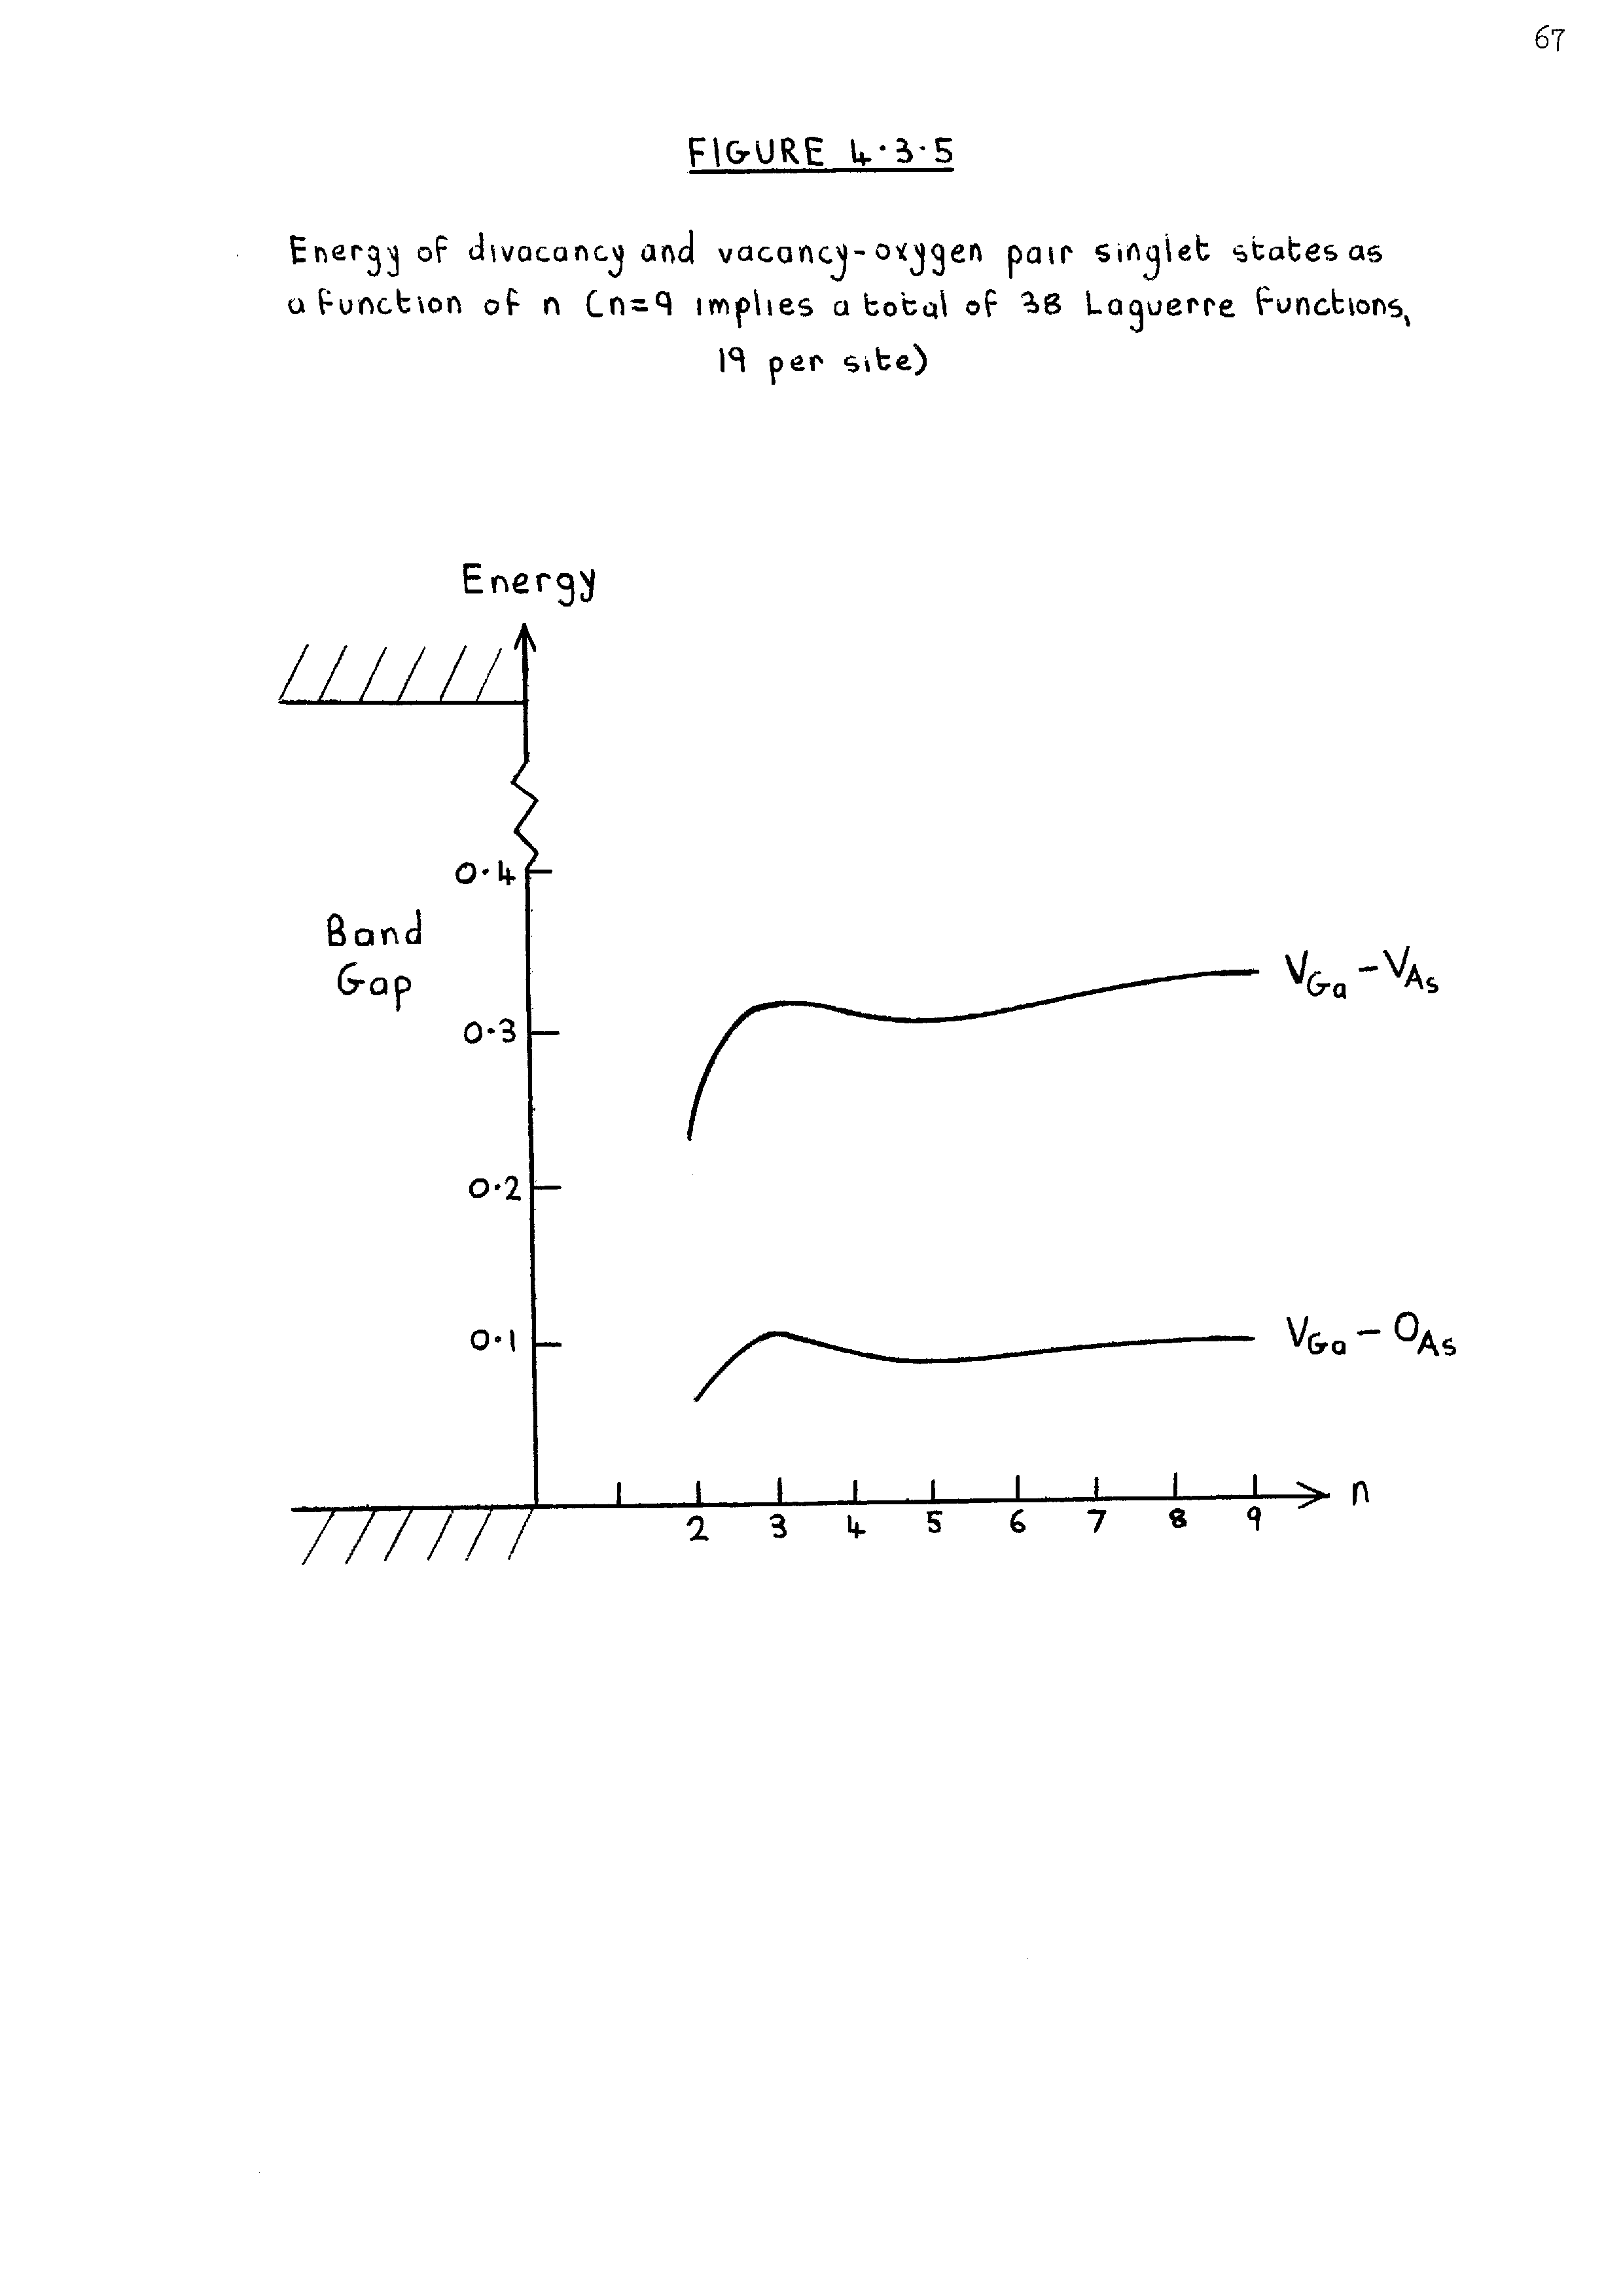 67
FIGURE 4·3·5
Energy of divacancy and vacancy-oxygen pair singlet states as
a function of n (n=9 implies a total of 38 Laguerre functions,
19 per site)
Energy
0·4
Band
Gap
V_Ga - V_As
0·3
0·2
0·1
V_Ga - O_As
n
2 3 4 5 6 7 8 9